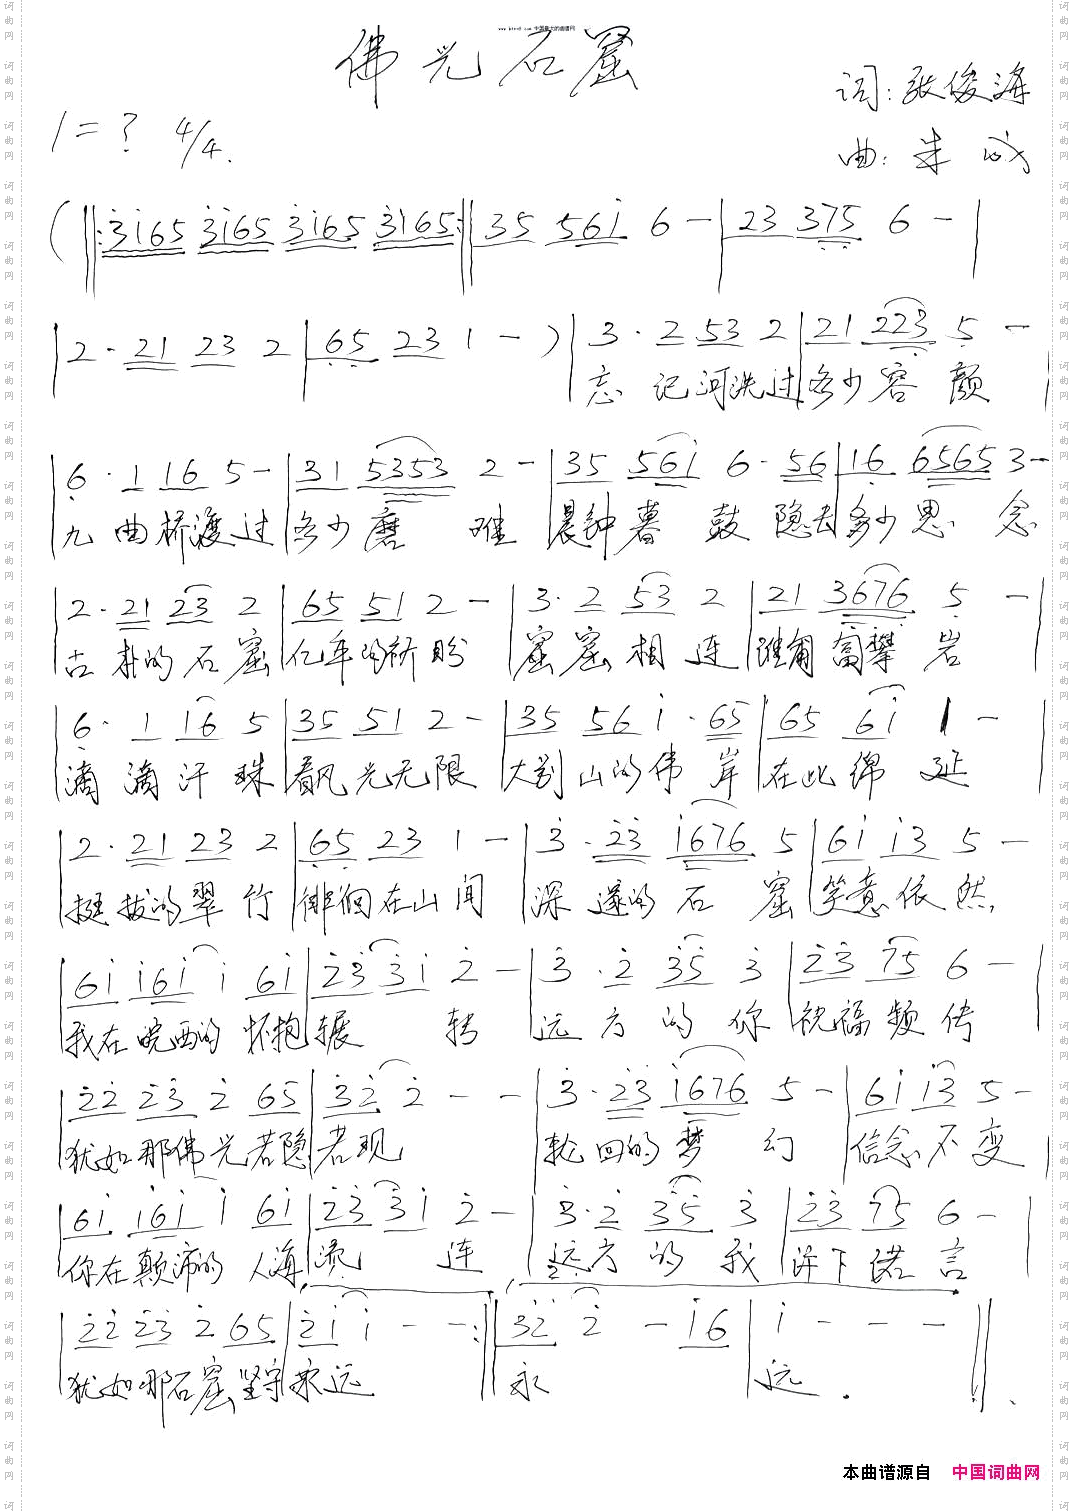 佛光石窟
词：张俊海
1=? 4/4
曲：朱
(‖:3165 3165 3165 3165:‖ 35 561 6 - | 23 375 6 - |
| 2· 21 23 2 | 65 23 1 - ) | 3· 2 53 2 | 21 223 5 - |
忘记河洗过多少容颜
| 6· 1 16 5 - | 31 5353 2 - | 35 561 6· 56 | 16 6565 3 -
九曲桥渡过多少磨难 晨钟暮鼓隐去多少思念
| 2· 21 23 2 | 65 51 2 - | 3· 2 53 2 | 21 3676 5 - |
古朴的石窟 亿年的祈盼 窟窟相连 谁葡匐攀岩
| 6· 1 16 5 | 35 51 2 - | 35 56 1· 65 | 65 61 1 - |
滴滴汗珠 看风光无限 大别山的佛岸 在此绵延
| 2· 21 23 2 | 65 23 1 - | 3· 23 1676 5 | 61 13 5 - |
挺拔的翠竹 徘徊在山间 深邃的石窟 笑意依然
| 61 161 1 61 | 23 31 2 - | 3· 2 35 3 | 23 75 6 - |
我在皖西的怀抱辗转 远方的你 祝福频传
| 22 23 2 65 | 32 2 - - | 3· 23 1676 5 - | 61 13 5 - |
犹如那佛光若隐若现 轮回的梦幻 信念不变
| 61 161 1 61 | 23 31 2 - | 3· 2 35 3 | 23 75 6 - |
你在颠沛的人海流连 远方的我 许下诺言
| 22 23 2 65 | 21 1 - - :‖ 32 2 - 16 | 1 - - - ‖
犹如那石窟坚守永远 永远
本曲谱源自 中国词曲网